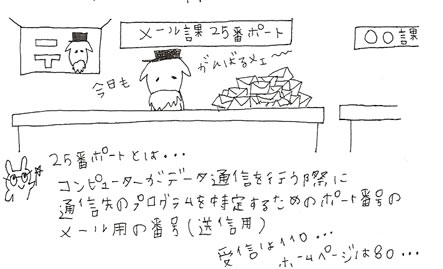 〒
メール課25番ポート
○○課
今日も
がんばるメェ〜
25番ポートとは・・・
コンピューターがデータ通信を行う際に
通信先のプログラムを特定するためのポート番号の
メール用の番号(送信用)
受信は110・・・
ホームページは80・・・